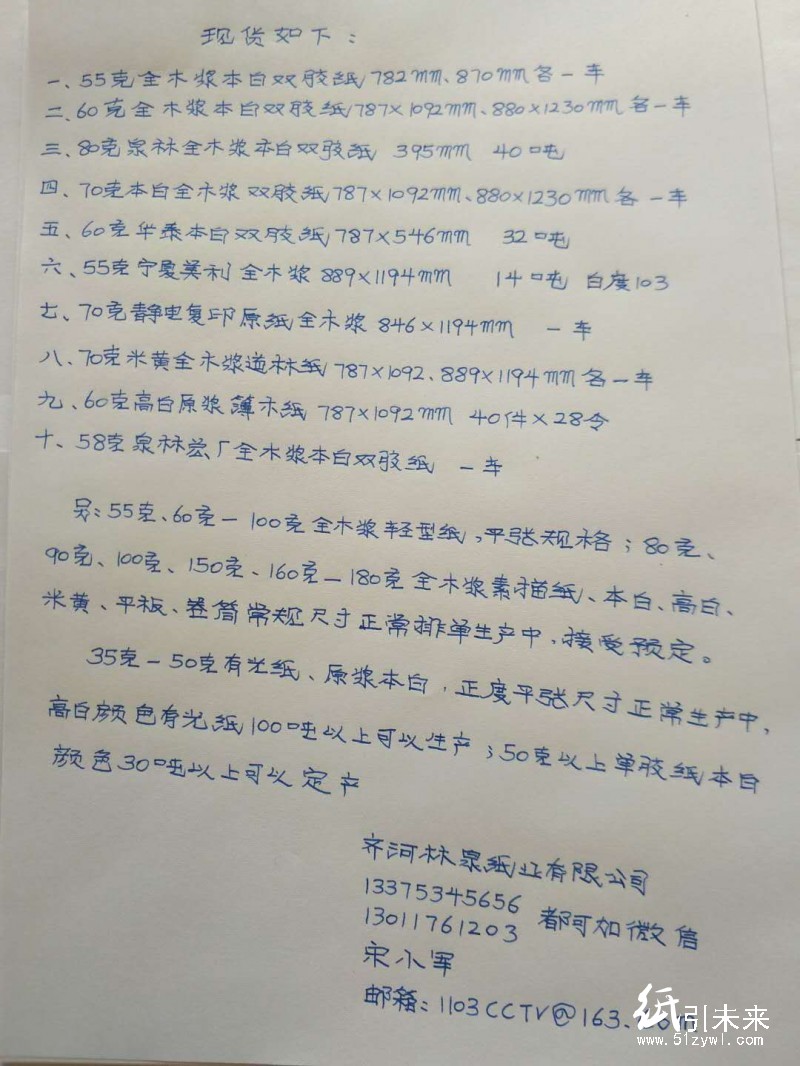 现货如下：
一、55克全木浆本白双胶纸782mm、870mm各一车
二、60克全木浆本白双胶纸787×1092mm、880×1230mm各一车
三、80克泉林全木浆本白双胶纸 395mm 40吨
四、70克本白全木浆双胶纸787×1092mm、880×1230mm各一车
五、60克华泰本白双胶纸787×546mm 32吨
六、55克宁夏美利全木浆889×1194mm 14吨 白度103
七、70克静电复印原纸全木浆846×1194mm 一车
八、70克米黄全木浆道林纸787×1092、889×1194mm各一车
九、60克高白原浆薄木纸787×1092mm 40件×28令
十、58克泉林总厂全木浆本白双胶纸 一车
另：55克、60克—100克全木浆轻型纸，平张规格；80克、
90克、100克、150克、160克—180克全木浆素描纸、本白、高白、
米黄、平板、卷筒常规尺寸正常排单生产中，接受预定。
35克—50克有光纸、原浆本白，正度平张尺寸正常生产中，
高白颜色有光纸100吨以上可以生产；50克以上单胶纸本白
颜色30吨以上可以定产
齐河林泉纸业有限公司
13375345656
13011761203 都可加微信
宋小军
邮箱：1103CCTV@163.com
纸引未来
www.51zywl.com